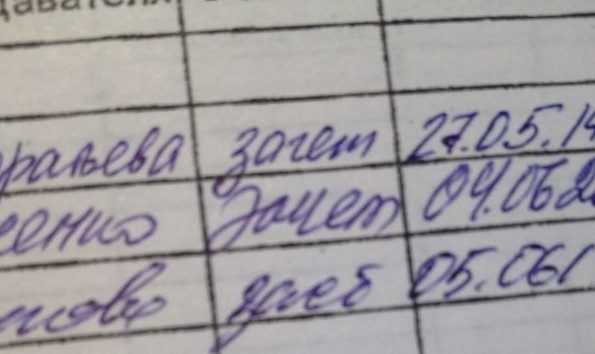 давателя
раньева зачет 27.05.14
сенко Зачет 04.062
заеб 05.061